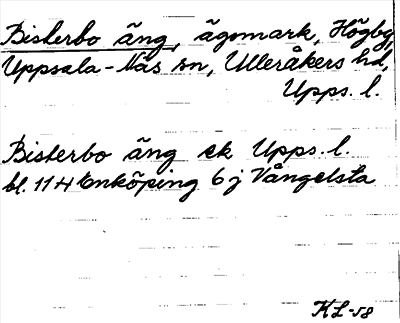 Bisterbo äng, ägomark, Högby,
Uppsala-Näs sn, Ulleråkers hd,
Upps. l.
Bisterbo äng ek Upps. l.
bl. 114 Enköping 6 j Vångelsta
KL-58